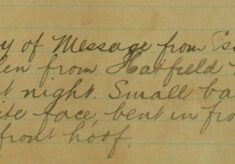 y of Message from
en from Hatfield
t night. Small ba
ite face, bent in fro
front hoof.